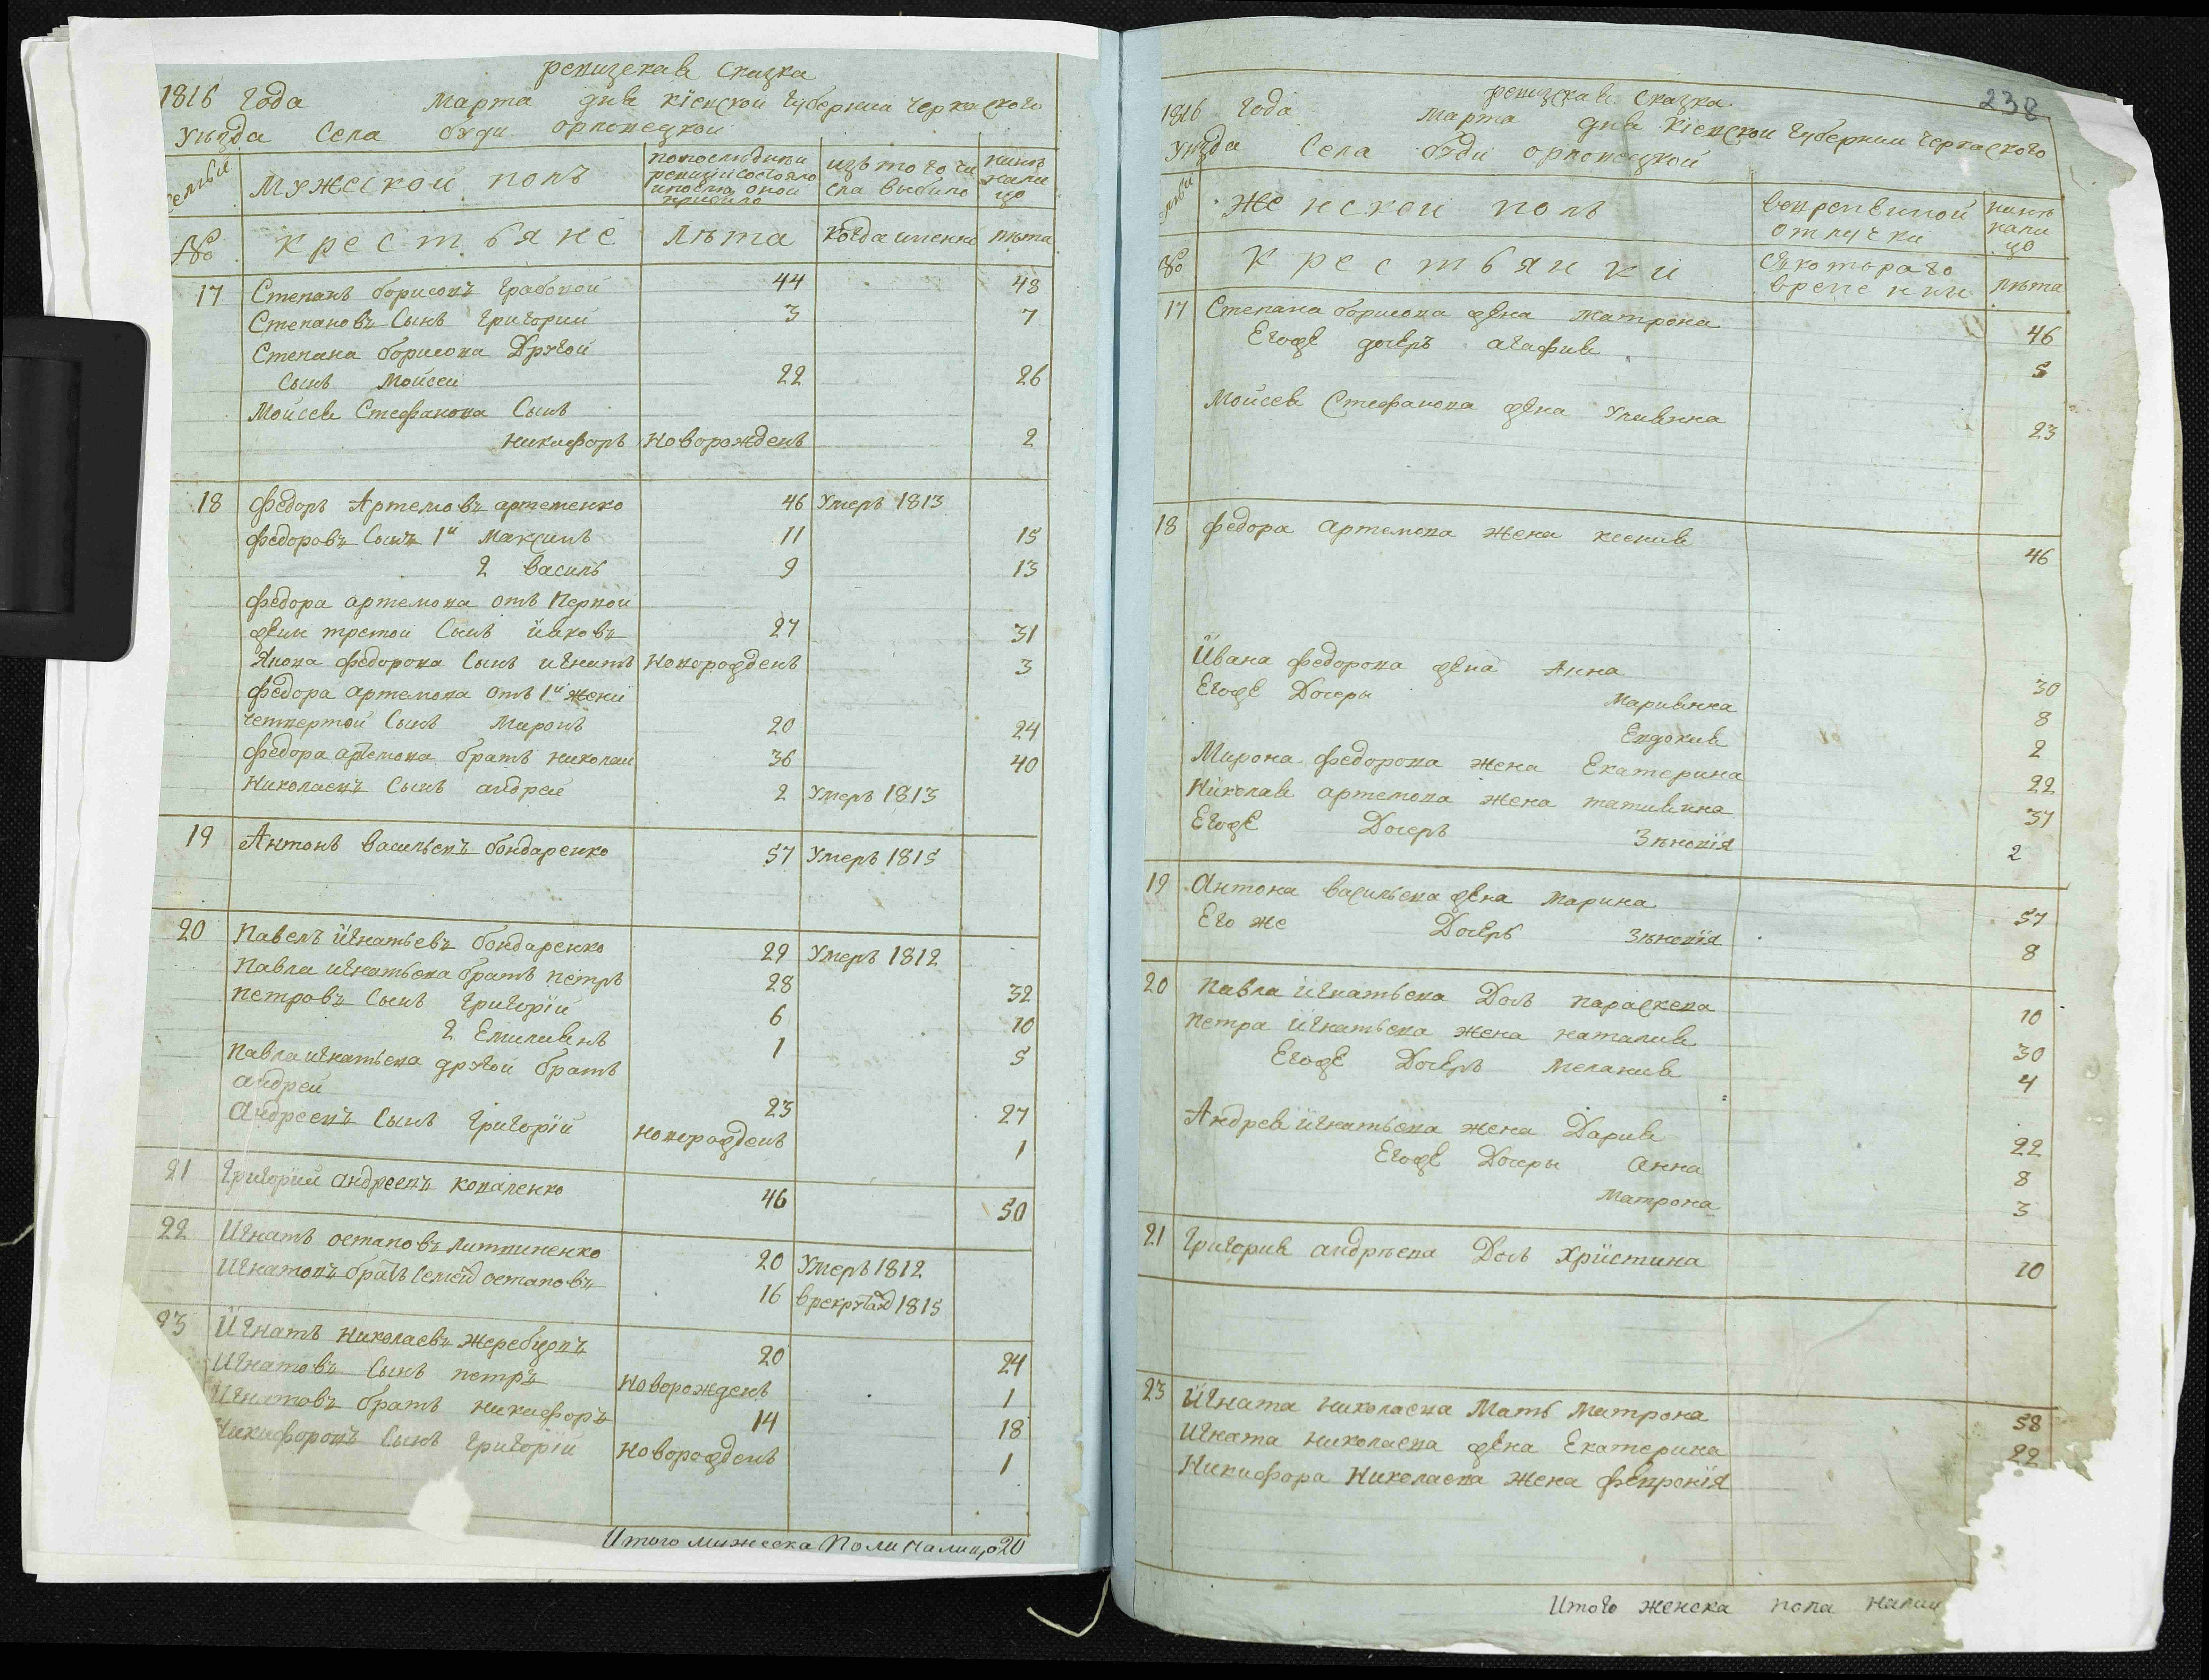 ревизская сказка
1816 года марта дня кіевской губернии черкаского
уѣзда села буди орловецкой
семьи
мужеской полъ
по последнѣй ревизіи состояло и после оной прибыло
изъ того числа выбыло
нынѣ на лицо
№ крестьяне лѣта когда именно лѣта
17 Степанъ борисовъ грабовой 44 48
Степановъ сынъ григорий 3 7
Степана борисова другой
сынъ мойсей 22 26
мойсея стефанова сынъ
никифоръ новорожденъ 2
18 федоръ Артемовъ артеменко 46 умеръ 1813
федоровъ сынъ 1й максимъ 11 15
2 василь 9 13
федора артемова отъ первой
жены третой сынъ яковъ 27 31
якова федорова сынъ игнатъ новорожденъ 3
федора артемова отъ 1й жени
четвертой сынъ миронъ 20 24
федора артемова братъ николай 36 40
николаевъ сынъ андрей 2 умеръ 1813
19 Антонъ васильевъ бондаренко 57 умеръ 1815
20 павелъ игнатьевъ бондаренко 29 умеръ 1812
павла игнатьева братъ петръ 28 32
петровъ сынъ григорій 6 10
2 емилиянъ 1 5
павла игнатьева другой братъ
андрей 23 27
андреевъ сынъ григорій новорожденъ 1
21 григорий андреевъ коваленко 46 50
22 игнатъ остаповъ литвиненко 20 умеръ 1812
игнатовъ братъ семенъ остаповъ 16 в рекрутахъ 1815
23 игнатъ николаевъ жеребцовъ 20 24
игнатовъ сынъ петръ новорожденъ 1
игнатовъ братъ никифоръ 14 18
никифоровъ сынъ григорій новорожденъ 1
Итого мужеска поли налицо 20
238
ревизская сказка
1816 года марта дня кіевской губернии черкаского
уѣзда села буди орловецкой
семьи
женской полъ
во временной отлучки
нынѣ на лицо
№ крестьянки съ котораго времении лѣта
17 Степана борисова жена матрона 46
егоже дочеръ агафия 5
мойсея стефанова жена улияна 23
18 федора артемова жена ксения 46
ивана федорова жена анна 30
егоже дочеры марияна 8
евдокия 2
мирона федорова жена екатерина 22
николая артемова жена татияна 37
егоже дочеръ зѣновія 2
19 антона васильева жена марина 57
его же дочеръ зѣновія 8
20 павла игнатьева дочь параскева 10
петра игнатьева жена наталия 30
егоже дочеръ мелания 4
Андрея игнатьева жена дария 22
егоже дочеры анна 8
матрона 3
21 григория андрѣева дочь христина 10
23 игната николаева мать матрона 58
игната николаева жена екатерина 22
никифора николаева жена февронія
Итого женска пола налиц